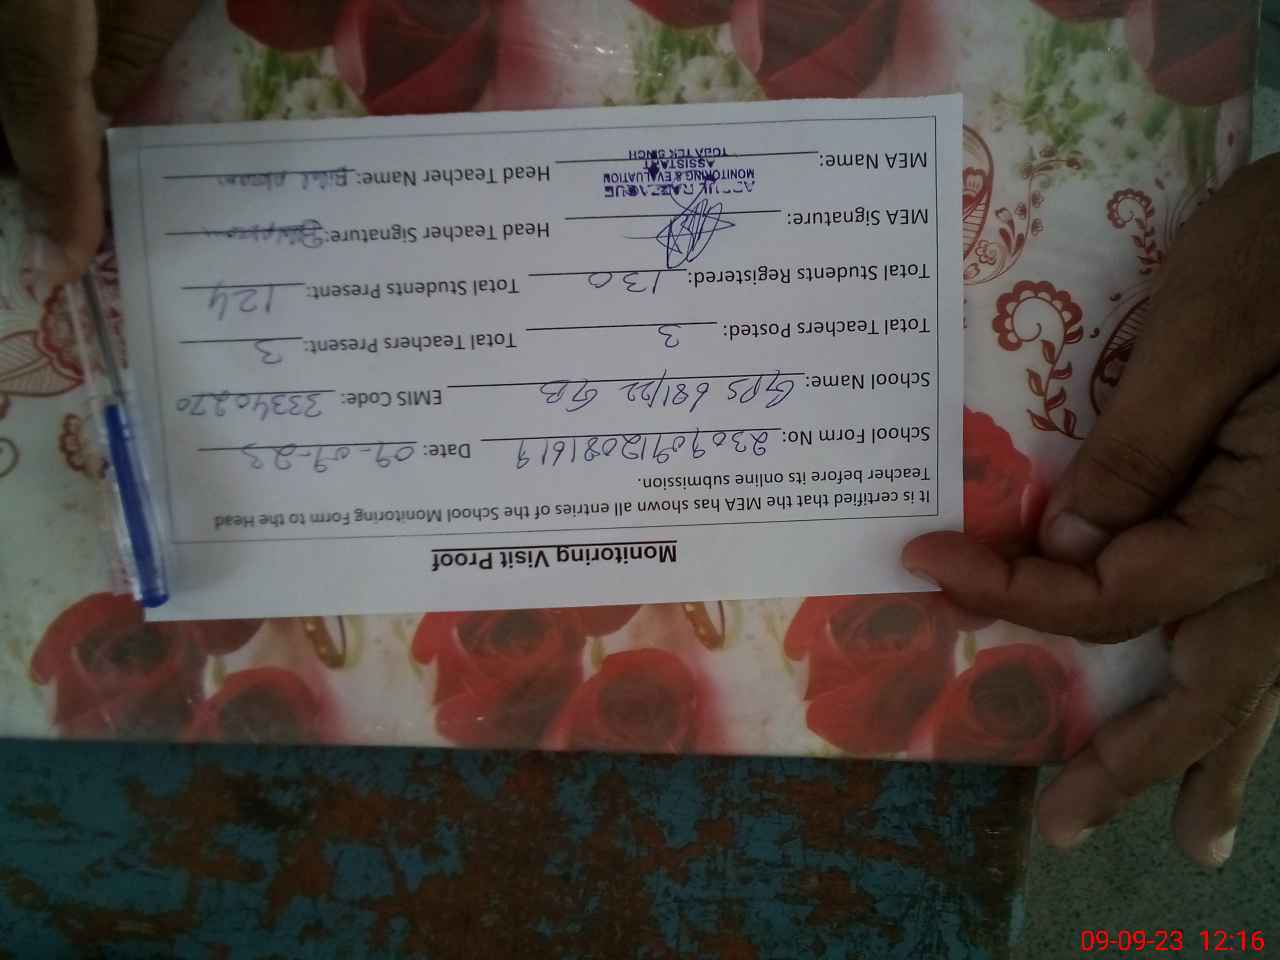 Monitoring Visit Proof
It is certified that the MEA has shown all entries of the School Monitoring Form to the Head
Teacher before its online submission.
School Form No: 23090912081619 Date: 09-09-23
School Name: GPS 681/22 GB EMIS Code: 33340270
Total Teachers Posted: 3 Total Teachers Present: 3
Total Students Registered: 130 Total Students Present: 124
MEA Signature: Head Teacher Signature:
MEA Name: Head Teacher Name: Bilal
MONITORING & EVALUATION
ASSISTANT
TOBA TEK SINGH
09-09-23 12:16